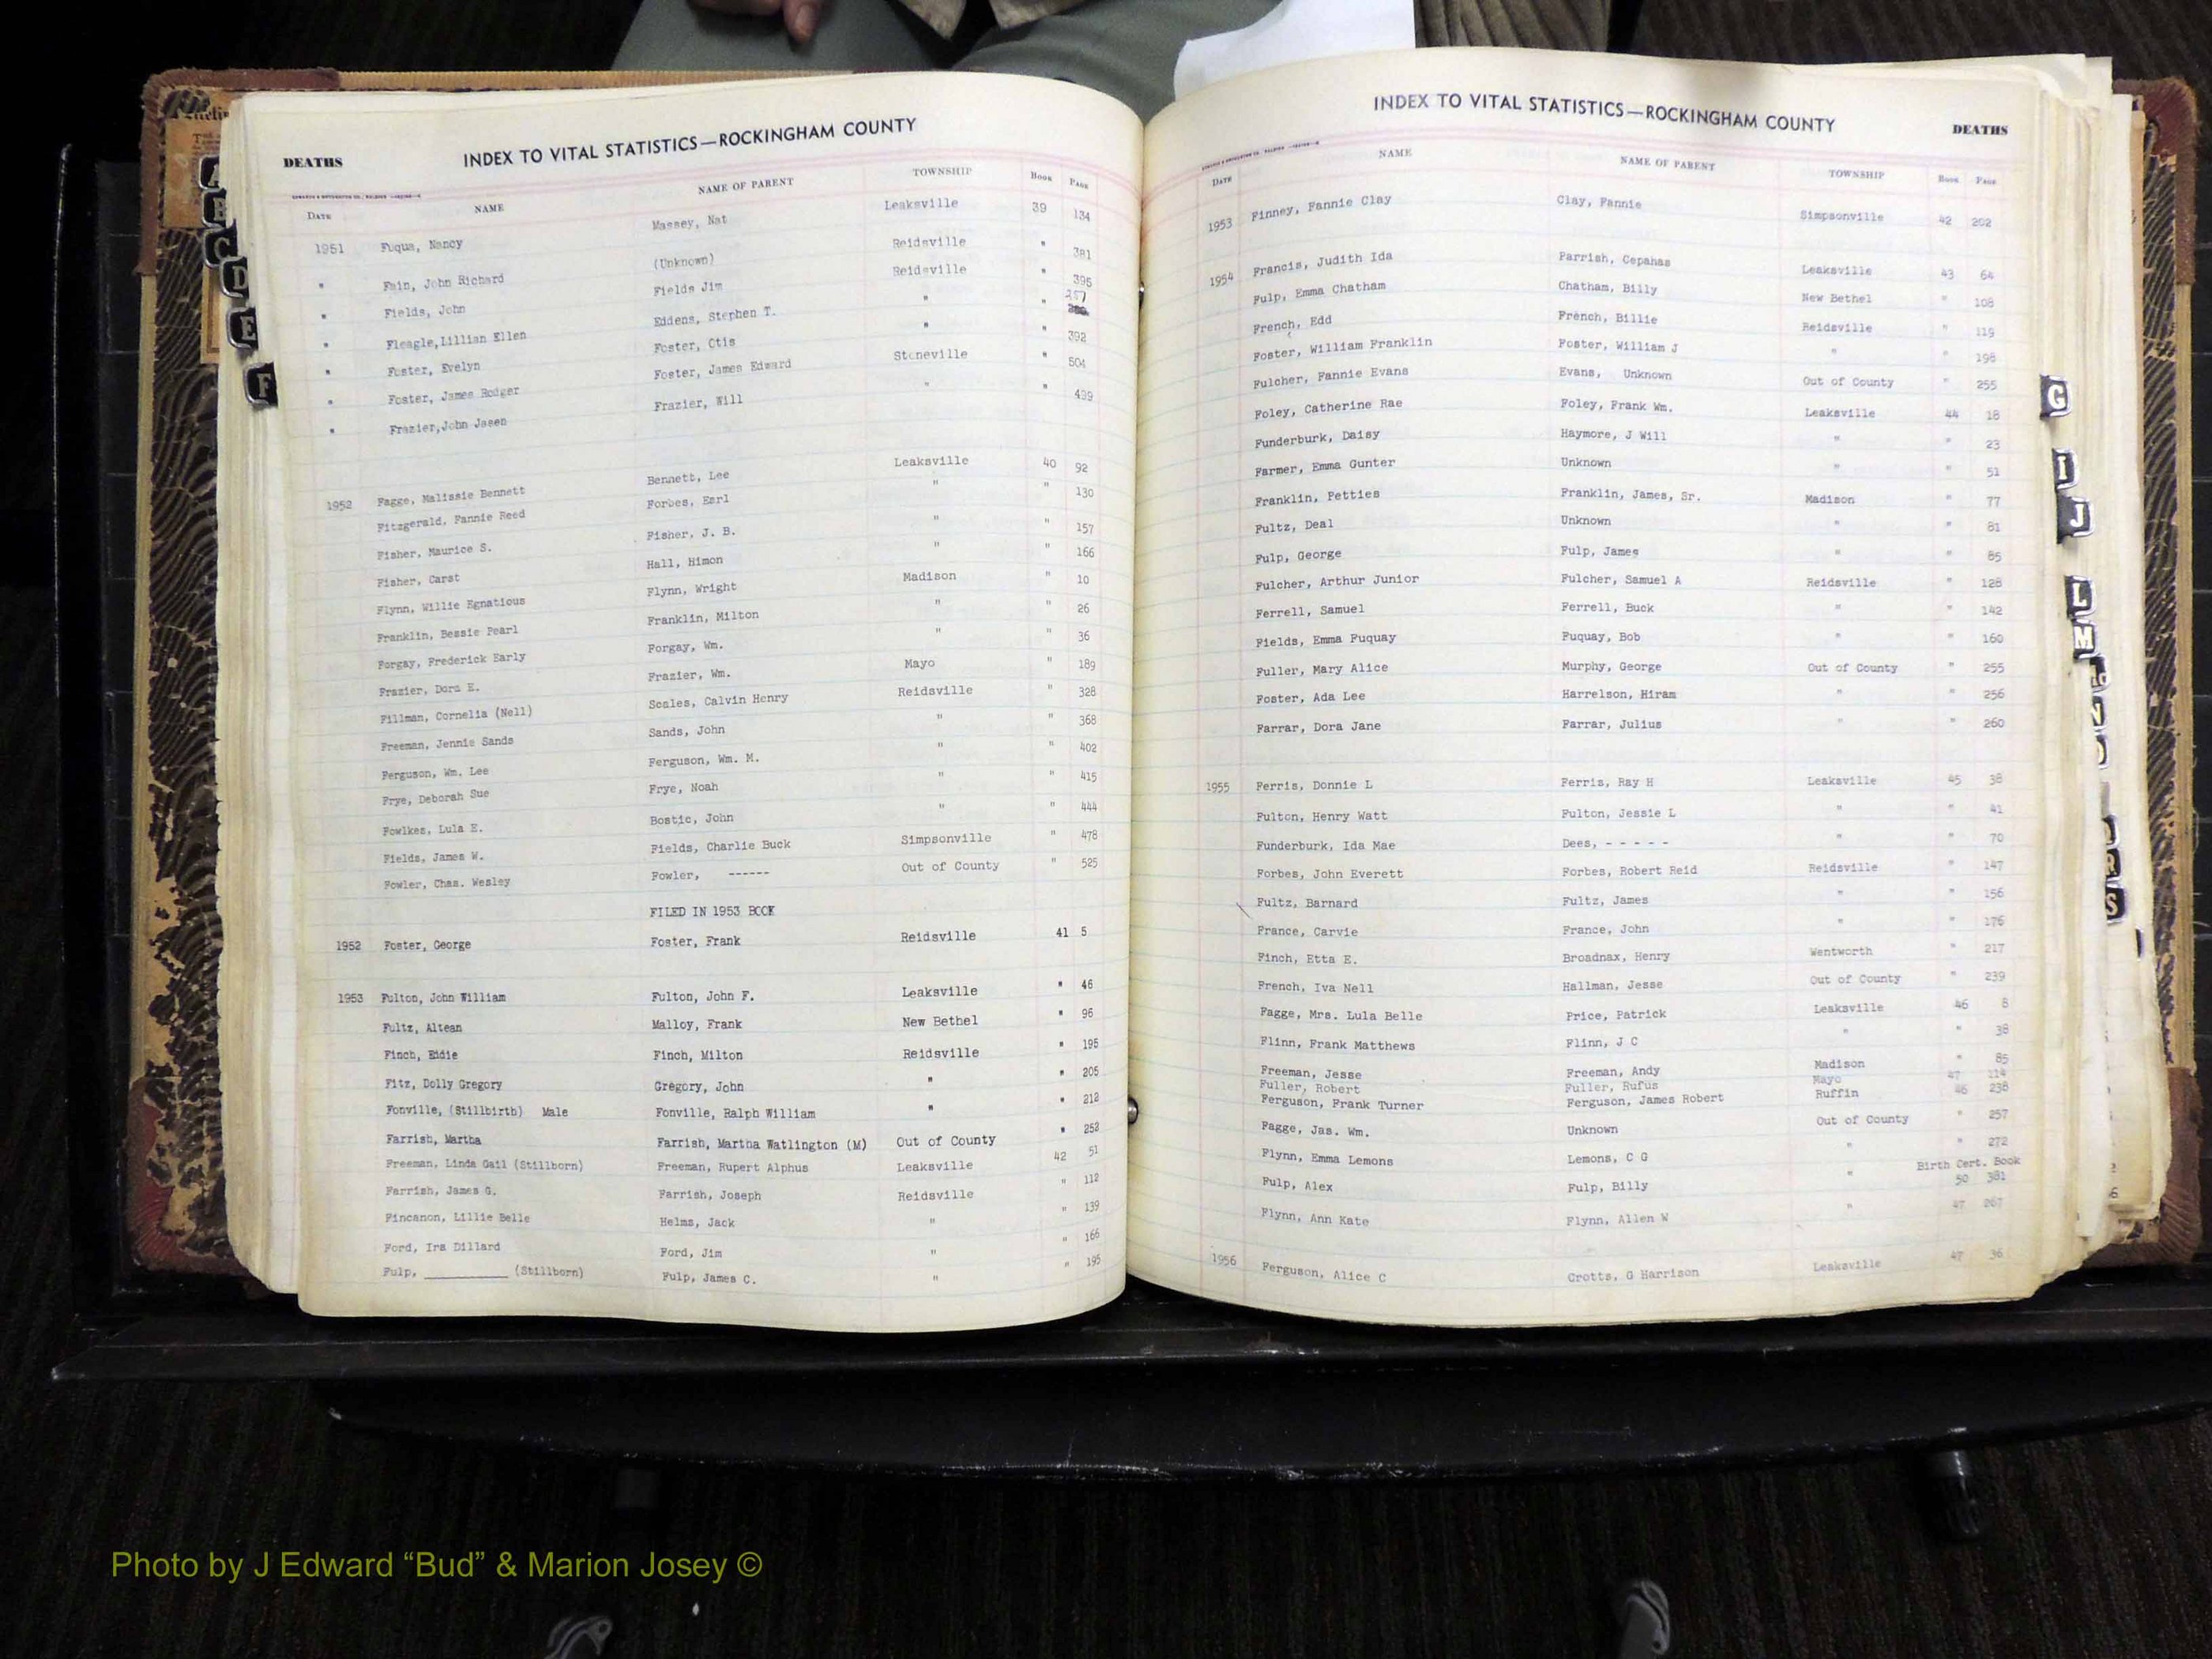 INDEX TO VITAL STATISTICS—ROCKINGHAM COUNTY
DEATHS
DATE NAME NAME OF PARENT TOWNSHIP Book Page
1951 Fuqua, Nancy Massey, Nat Leaksville 39 134
" Fain, John Richard (Unknown) Reidsville " 381
" Fields, John Fields Jim Reidsville " 395
" Fleagle,Lillian Ellen Eddens, Stephen T. " "
" Foster, Evelyn Foster, Otis " " 392
" Foster, James Rodger Foster, James Edward Stoneville " 504
" Frazier,John Jasen Frazier, Will " " 499
1952 Fagge, Malissie Bennett Bennett, Lee Leaksville 40 92
Fitzgerald, Fannie Reed Forbes, Earl " " 130
Fisher, Maurice S. Fisher, J. B. " " 157
Fisher, Carst Hall, Himon " " 166
Flynn, Willie Egnatious Flynn, Wright Madison " 10
Franklin, Bessie Pearl Franklin, Milton " " 26
Forgay, Frederick Early Forgay, Wm. " " 36
Frazier, Dora E. Frazier, Wm. Mayo " 189
Fillman, Cornelia (Nell) Scales, Calvin Henry Reidsville " 328
Freeman, Jennie Sands Sands, John " " 368
Ferguson, Wm. Lee Ferguson, Wm. M. " " 402
Frye, Deborah Sue Frye, Noah " " 415
Fowlkes, Lula E. Bostic, John " " 444
Fields, James W. Fields, Charlie Buck Simpsonville " 478
Fowler, Chas. Wesley Fowler, ------ Out of County " 525
FILED IN 1953 BOOK
1952 Foster, George Foster, Frank Reidsville 41 5
1953 Fulton, John William Fulton, John F. Leaksville " 46
Fultz, Altean Malloy, Frank New Bethel " 96
Finch, Eddie Finch, Milton Reidsville " 195
Fitz, Dolly Gregory Gregory, John " " 205
Fonville, (Stillbirth) Male Fonville, Ralph William " " 212
Farrish, Martha Farrish, Martha Watlington (M) Out of County " 252
Freeman, Linda Gail (Stillborn) Freeman, Rupert Alphus Leaksville 42 51
Farrish, James G. Farrish, Joseph Reidsville " 112
Fincanon, Lillie Belle Helms, Jack " " 139
Ford, Ira Dillard Ford, Jim " " 166
Fulp, __________ (Stillborn) Fulp, James C. " " 195
INDEX TO VITAL STATISTICS—ROCKINGHAM COUNTY
DEATHS
DATE NAME NAME OF PARENT TOWNSHIP Book Page
1953 Finney, Fannie Clay Clay, Fannie Simpsonville 42 202
1954 Francis, Judith Ida Parrish, Cepahas Leaksville 43 64
Fulp, Emma Chatham Chatham, Billy New Bethel " 108
French, Edd French, Billie Reidsville " 119
Foster, William Franklin Foster, William J " " 198
Fulcher, Fannie Evans Evans, Unknown Out of County " 255
Foley, Catherine Rae Foley, Frank Wm. Leaksville 44 18
Funderburk, Daisy Haymore, J Will " " 23
Farmer, Emma Gunter Unknown " " 51
Franklin, Petties Franklin, James, Sr. Madison " 77
Fultz, Deal Unknown " " 81
Fulp, George Fulp, James " " 85
Fulcher, Arthur Junior Fulcher, Samuel A Reidsville " 128
Ferrell, Samuel Ferrell, Buck " " 142
Fields, Emma Fuquay Fuquay, Bob " " 160
Fuller, Mary Alice Murphy, George Out of County " 255
Foster, Ada Lee Harrelson, Hiram " " 256
Farrar, Dora Jane Farrar, Julius " " 260
1955 Ferris, Donnie L Ferris, Ray H Leaksville 45 38
Fulton, Henry Watt Fulton, Jessie L " " 41
Funderburk, Ida Mae Dees, - - - - - " " 70
Forbes, John Everett Forbes, Robert Reid Reidsville " 147
Fultz, Barnard Fultz, James " " 156
France, Carvie France, John " " 176
Finch, Etta E. Broadnax, Henry Wentworth " 217
French, Iva Nell Hallman, Jesse Out of County " 239
Fagge, Mrs. Lula Belle Price, Patrick Leaksville 46 8
Flinn, Frank Matthews Flinn, J C " " 38
Freeman, Jesse Freeman, Andy Madison " 85
Fuller, Robert Fuller, Rufus Mayo 47 114
Ferguson, Frank Turner Ferguson, James Robert Ruffin 46 238
Fagge, Jas. Wm. Unknown Out of County " 257
Flynn, Emma Lemons Lemons, C G " " 272
Birth Cert. Book
Fulp, Alex Fulp, Billy " 50 381
Flynn, Ann Kate Flynn, Allen W " 47 267
1956 Ferguson, Alice C Crotts, G Harrison Leaksville 47 36
A
B
C
D
E
F
G
I
J
L
M
N
R
S
Photo by J Edward “Bud” & Marion Josey ©